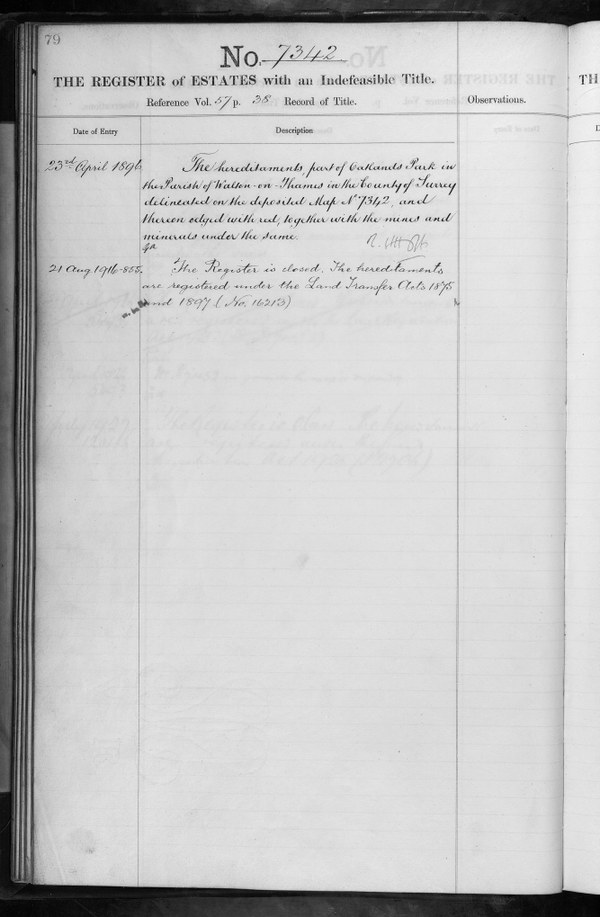 79
No. 7342
THE REGISTER of ESTATES with an Indefeasible Title.
Reference Vol. 57 p. 38 Record of Title.
Observations.
Date of Entry
Description
23rd April 1896
The hereditaments, part of Oatlands Park in
the Parish of Walton-on-Thames in the County of Surrey
delineated on the deposited Map No 7342, and
thereon edged with red, together with the mines and
minerals under the same.
21 Aug. 1916-855.
The Register is closed. The hereditaments
are registered under the Land Transfer Acts 1875
and 1897 (No. 16213)
TH
D